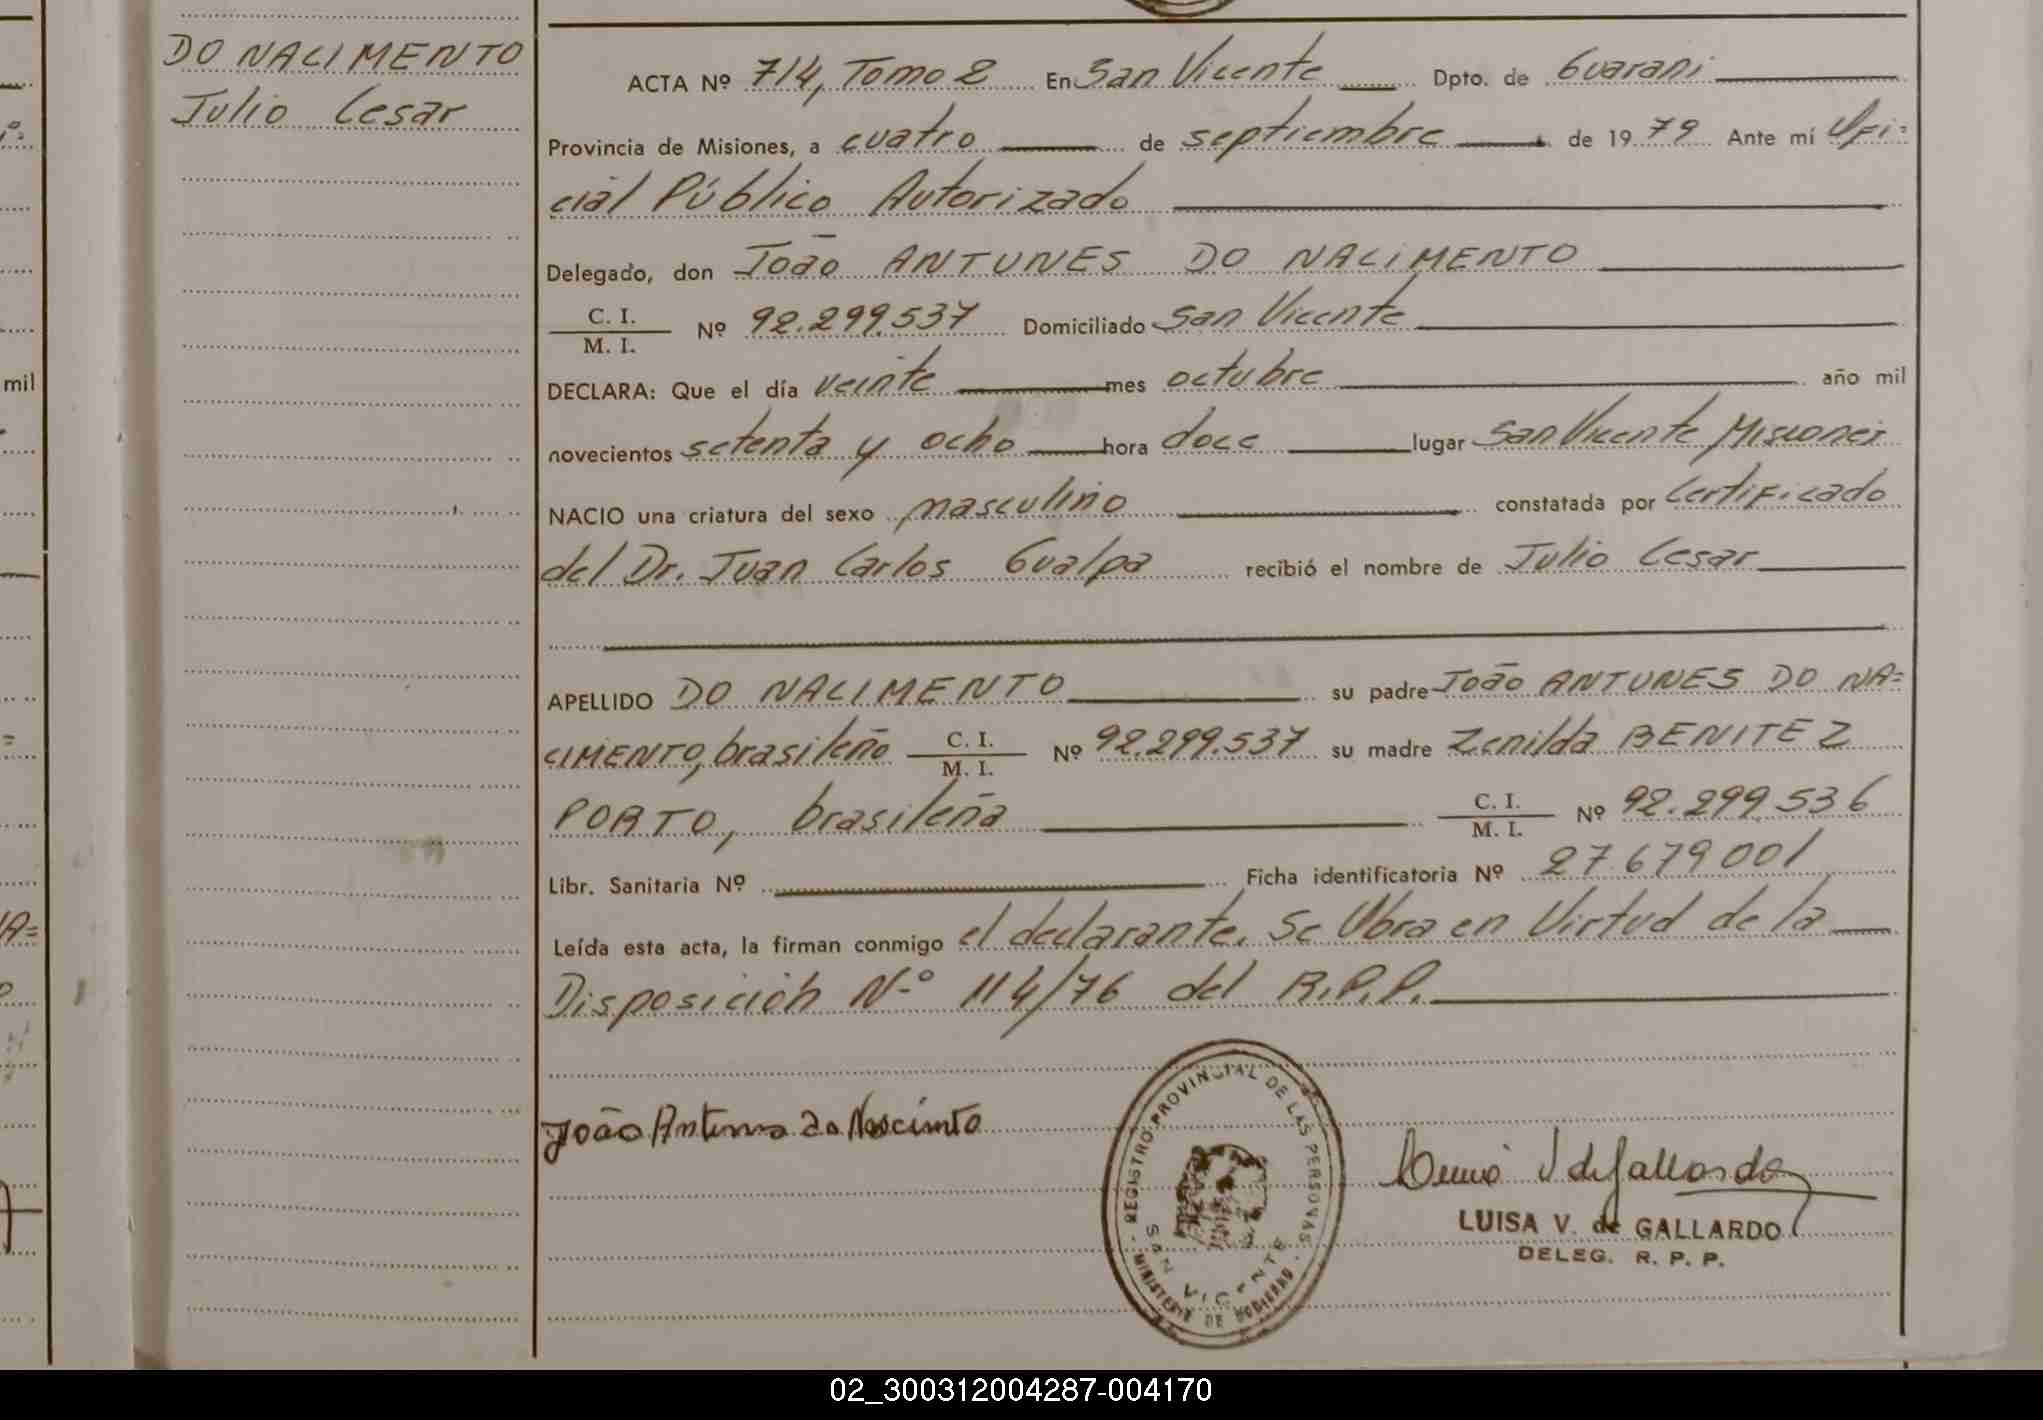 DO NACIMENTO
Julio Cesar
ACTA Nº 714, Tomo 2 En San Vicente Dpto. de Guarani
Provincia de Misiones, a cuatro de septiembre de 1979 Ante mí Ofi=
cial Público Autorizado
Delegado, don João ANTUNES DO NACIMENTO
C. I.
M. I. Nº 92.299.537 Domiciliado San Vicente
DECLARA: Que el día veinte mes octubre año mil
novecientos setenta y ocho hora doce lugar San Vicente Misiones
NACIO una criatura del sexo masculino constatada por Certificado
del Dr. Juan Carlos Gualpa recibió el nombre de Julio Cesar
APELLIDO DO NACIMENTO su padre João ANTUNES DO NA=
CIMENTO, brasileño C. I. M. I. Nº 92.299.537 su madre Zenilda BENITEZ
PORTO, brasileña C. I. M. I. Nº 92.299.536
Libr. Sanitaria Nº Ficha identificatoria Nº 27.679.001
Leída esta acta, la firman conmigo el declarante. Se Obra en Virtud de la
Disposición Nº 114/76 del R.P.P.
João Antunes do Nascimto
REGISTRO PROVINCIAL DE LAS PERSONAS
SAN VICENTE
MINISTERIO DE GOBIERNO
LUISA V. de GALLARDO
DELEG. R. P. P.
mil
02_300312004287-004170